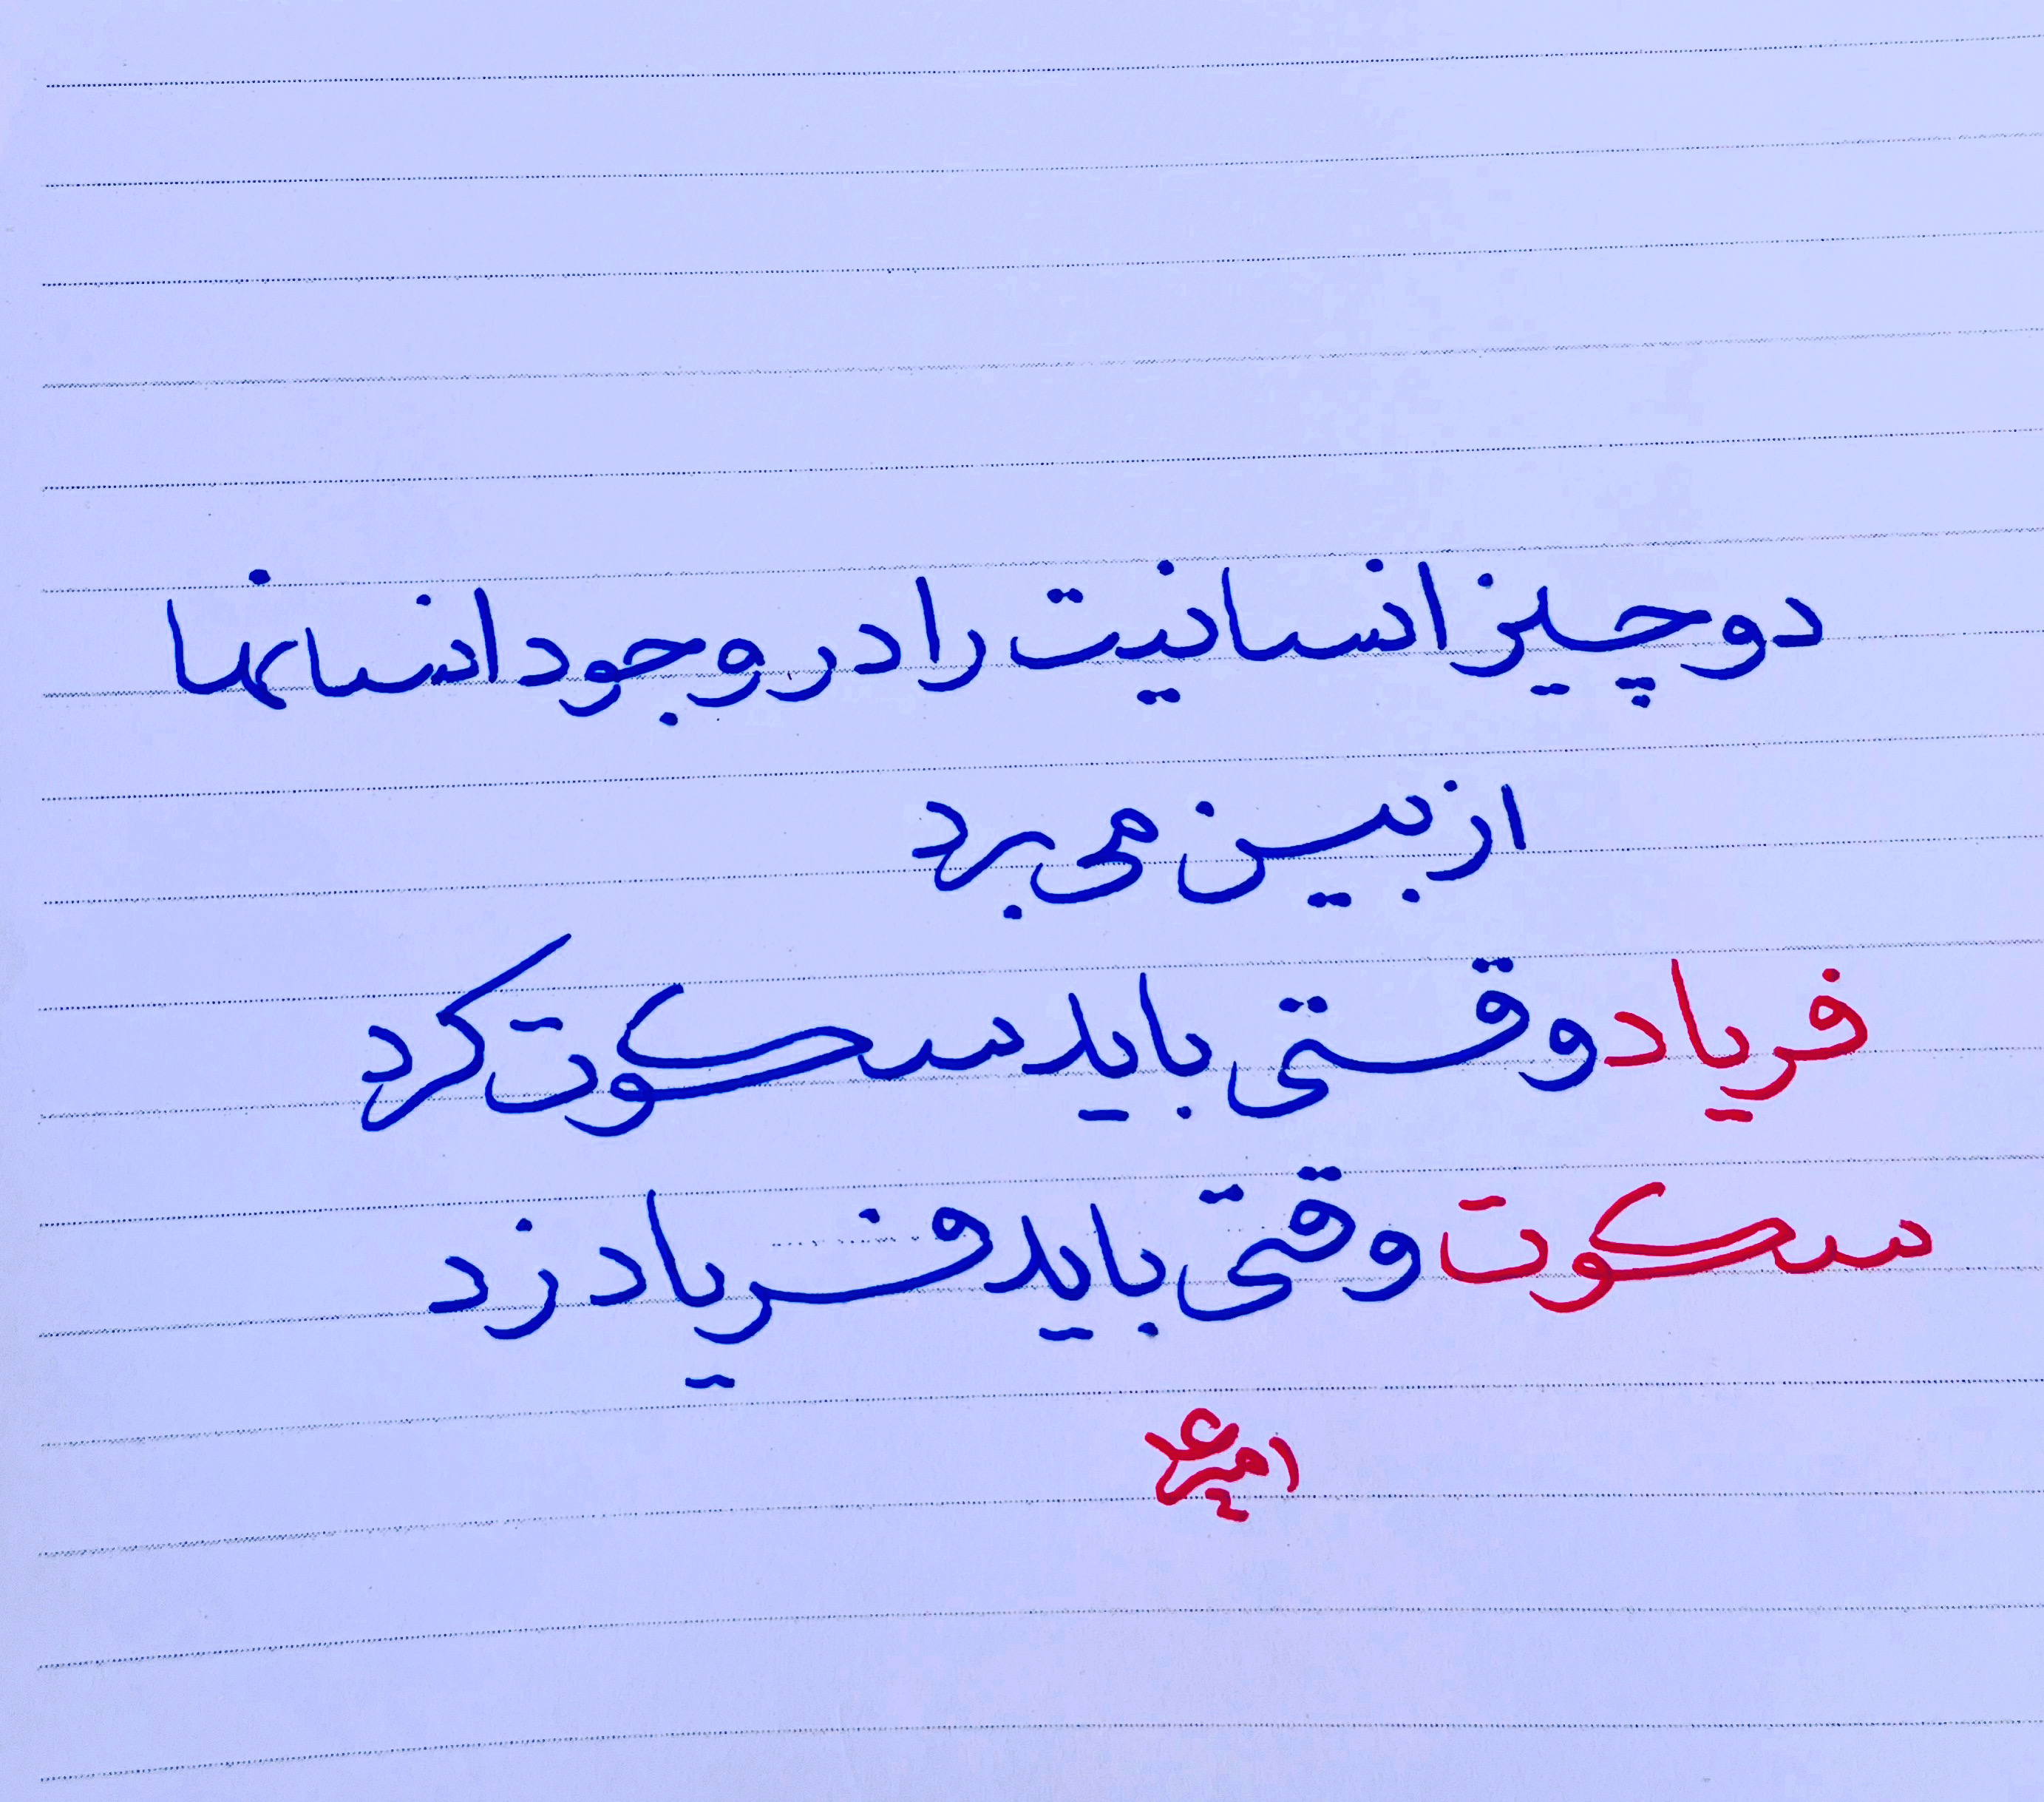 دو چیز انسانیت را در وجود انسانها
از بین می برد
فریاد وقتی باید سکوت کرد
سکوت وقتی باید فریاد زد